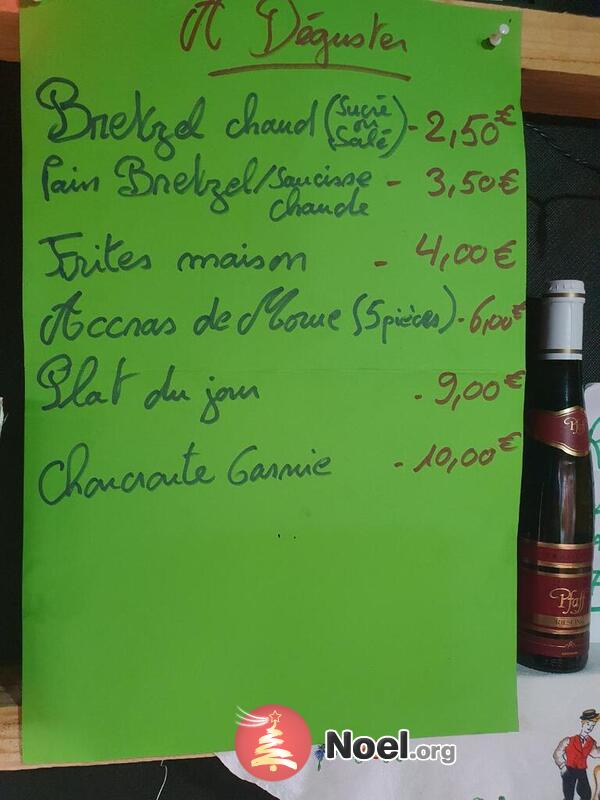 A Déguster
Bretzel chaud (Sucré ou Salé) - 2,50€
Pain Bretzel/Saucisse chaude - 3,50€
Frites maison - 4,00€
Accras de Morue (5 pièces) - 6,00€
Plat du jour - 9,00€
Choucroute Garnie - 10,00€
Pfaff
RIESLING
Noel.org